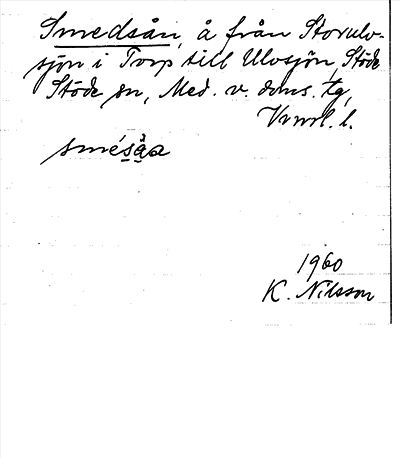 Smedsån, å från Storulv-
sjön i Torp till Ulvsjön, Stöde
Stöde sn, Med. v. doms. tg,
Vrnrl. l.
smésåa
1960
K. Nilsson